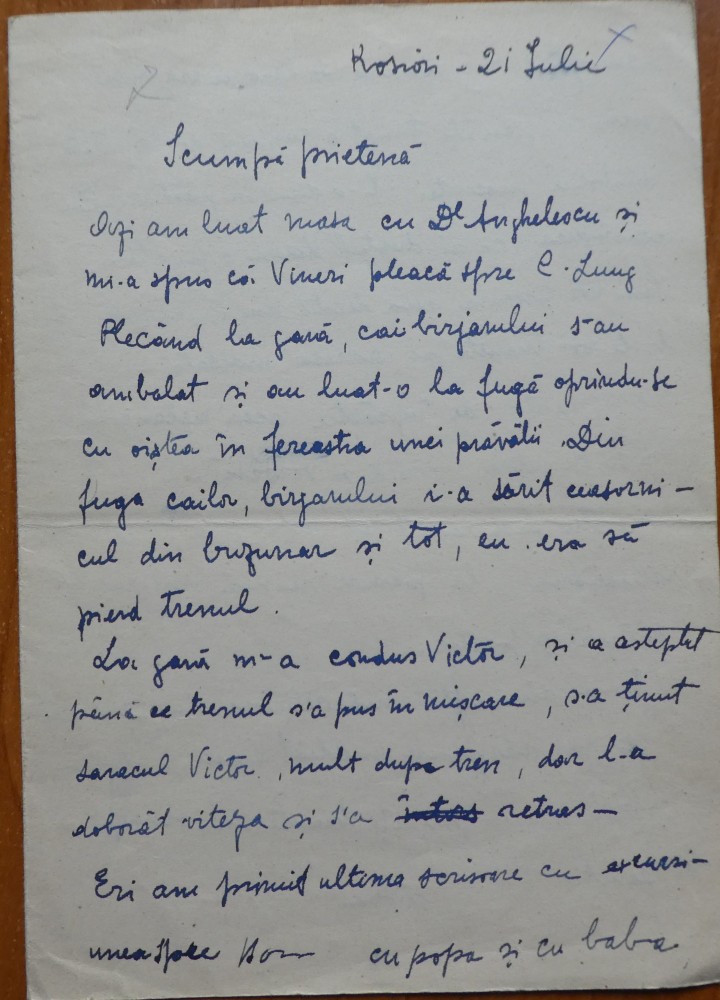 Rosiori - 21 Iulie
Scumpă prietenă
Azi am luat masa cu Dl Anghelescu și
mi-a spus că Vineri pleacă spre C. Lung
Plecând la gară, caii birjarului s-au
ambalat și au luat-o la fugă oprindu-se
cu oiștea în fereastra unei prăvălii. Din
fuga cailor, birjarului i-a sărit ceasorni-
cul din buzunar și tot, eu era să
pierd trenul.
La gară m-a condus Victor, și a asteptat
până ce trenul s'a pus în mișcare, s-a ținut
saracul Victor, mult dupa tren, dar l-a
doborât viteza și s'a întors retras-
Eri am primit ultima scrisoare cu excursi-
unea spre cu popa și cu baba